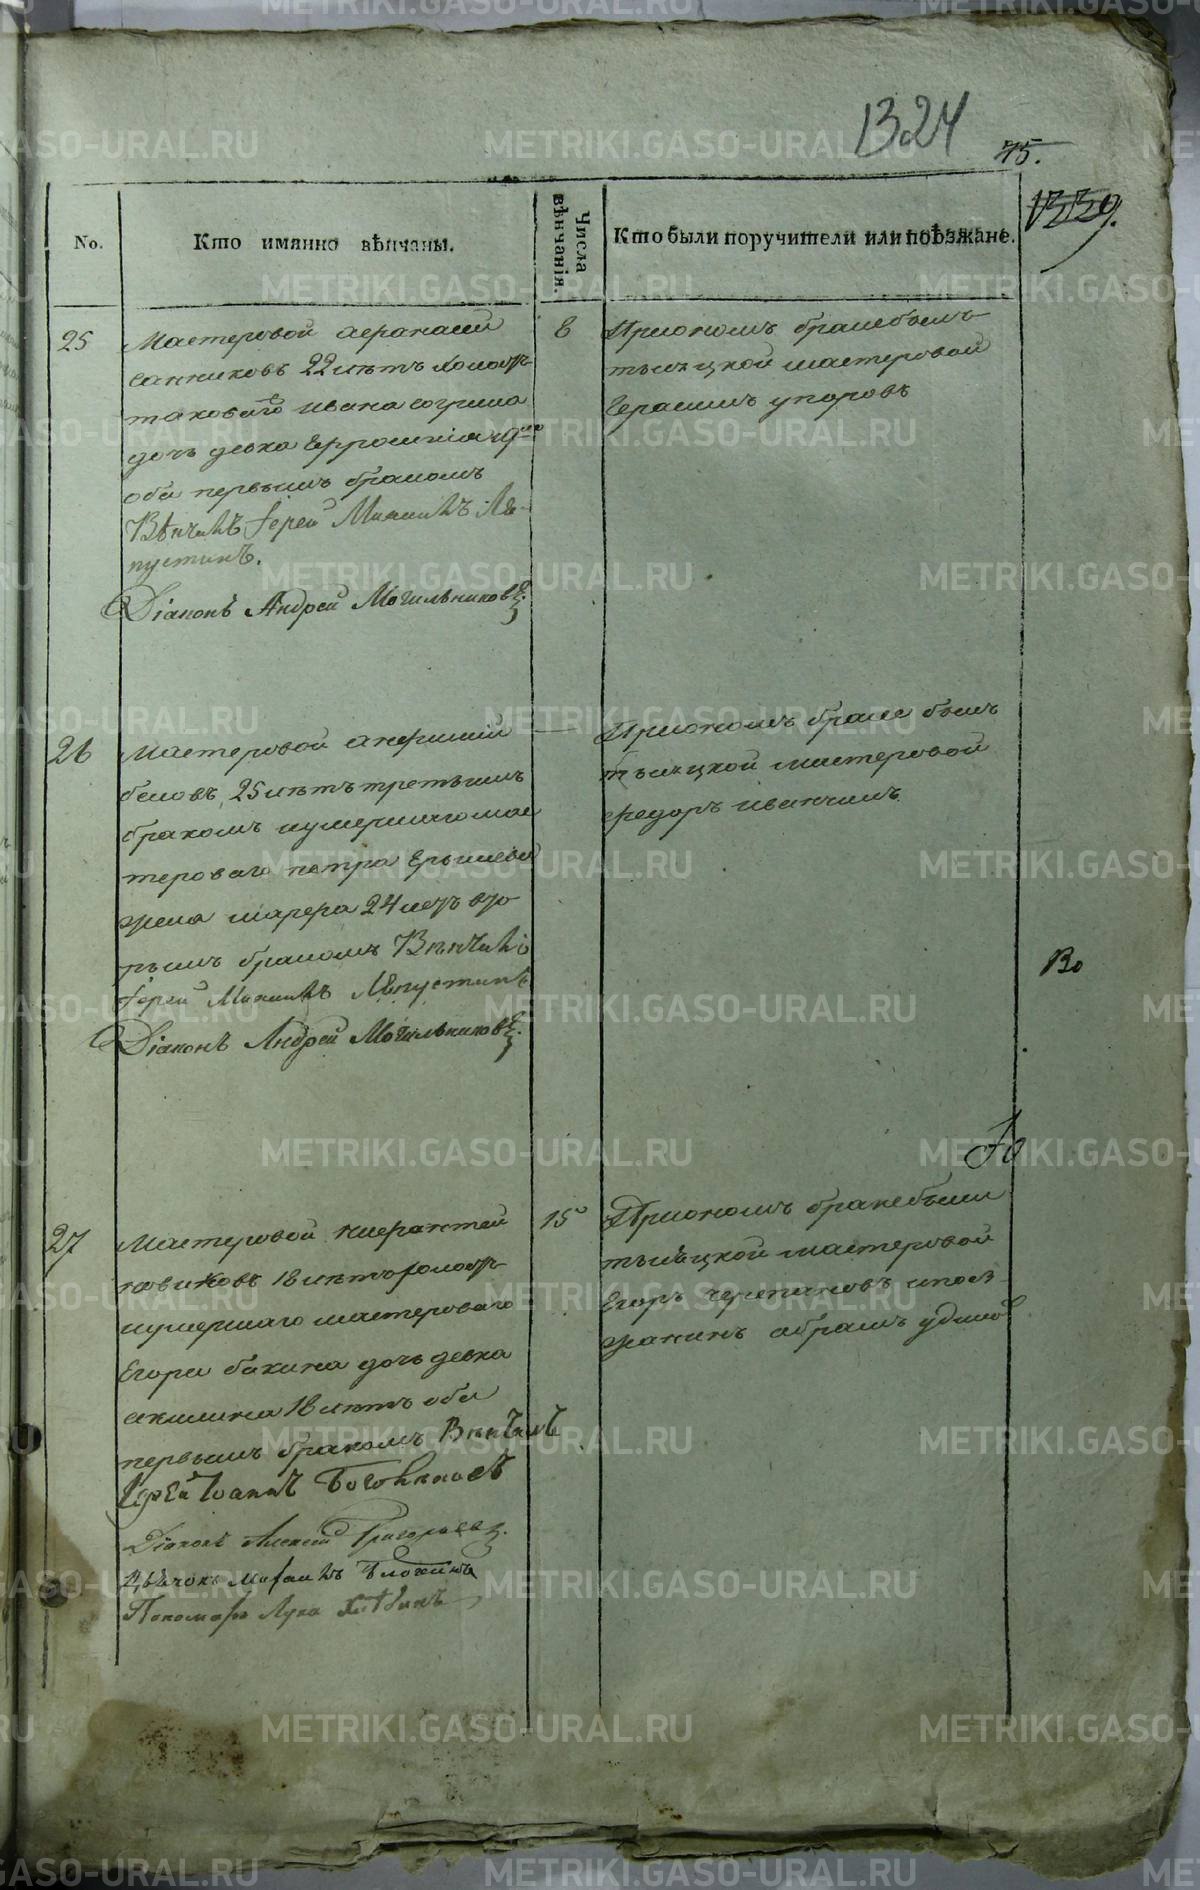 1324
75.
1339.
No.
Кто имянно вѣнчаны.
Числа вѣнчанія.
Кто были поручители или поѣзжане.
25
Мастеровой афанасей
санниковъ 22 лѣтъ холостъ
таковаго ивана согрина
дочь девка Ефросинія 19
оба первымъ бракомъ
Вѣнчалъ Іерей Михаилъ Ля-
пустинъ.
Діаконъ Андрей Могильниковъ.
8
При ономъ браке былъ
тысяцкой мастеровой
Герасимъ упоровъ
26
Мастеровой анфиногій
беловъ 25 лѣтъ третьимъ
бракомъ и умершаго мас
героваго петра Ерышева
жена марфа 24 летъ вто
рымъ бракомъ Вѣнчалъ
Іерей Михаилъ Ляпустинъ
Діаконъ Андрей Могильниковъ.
При ономъ браке былъ
тысяцкой мастеровой
федоръ иванчинъ
Во
27
Мастеровой
новиковъ 18 лѣтъ холостъ
и умершаго мастероваго
Егора бакина дочь девка
акилина 18 лѣтъ оба
первымъ бракомъ Вѣнчалъ
Іерей Іоаннъ
Діаконъ Алексей Григорьевъ.
Дьячокъ Михаилъ
Пономарь Лука Хлѣбинъ
15
При ономъ браке были
тысяцкой мастеровой
Егоръ черепановъ и поез-
жанинъ абрамъ удинов
METRIKI.GASO-URAL.RU